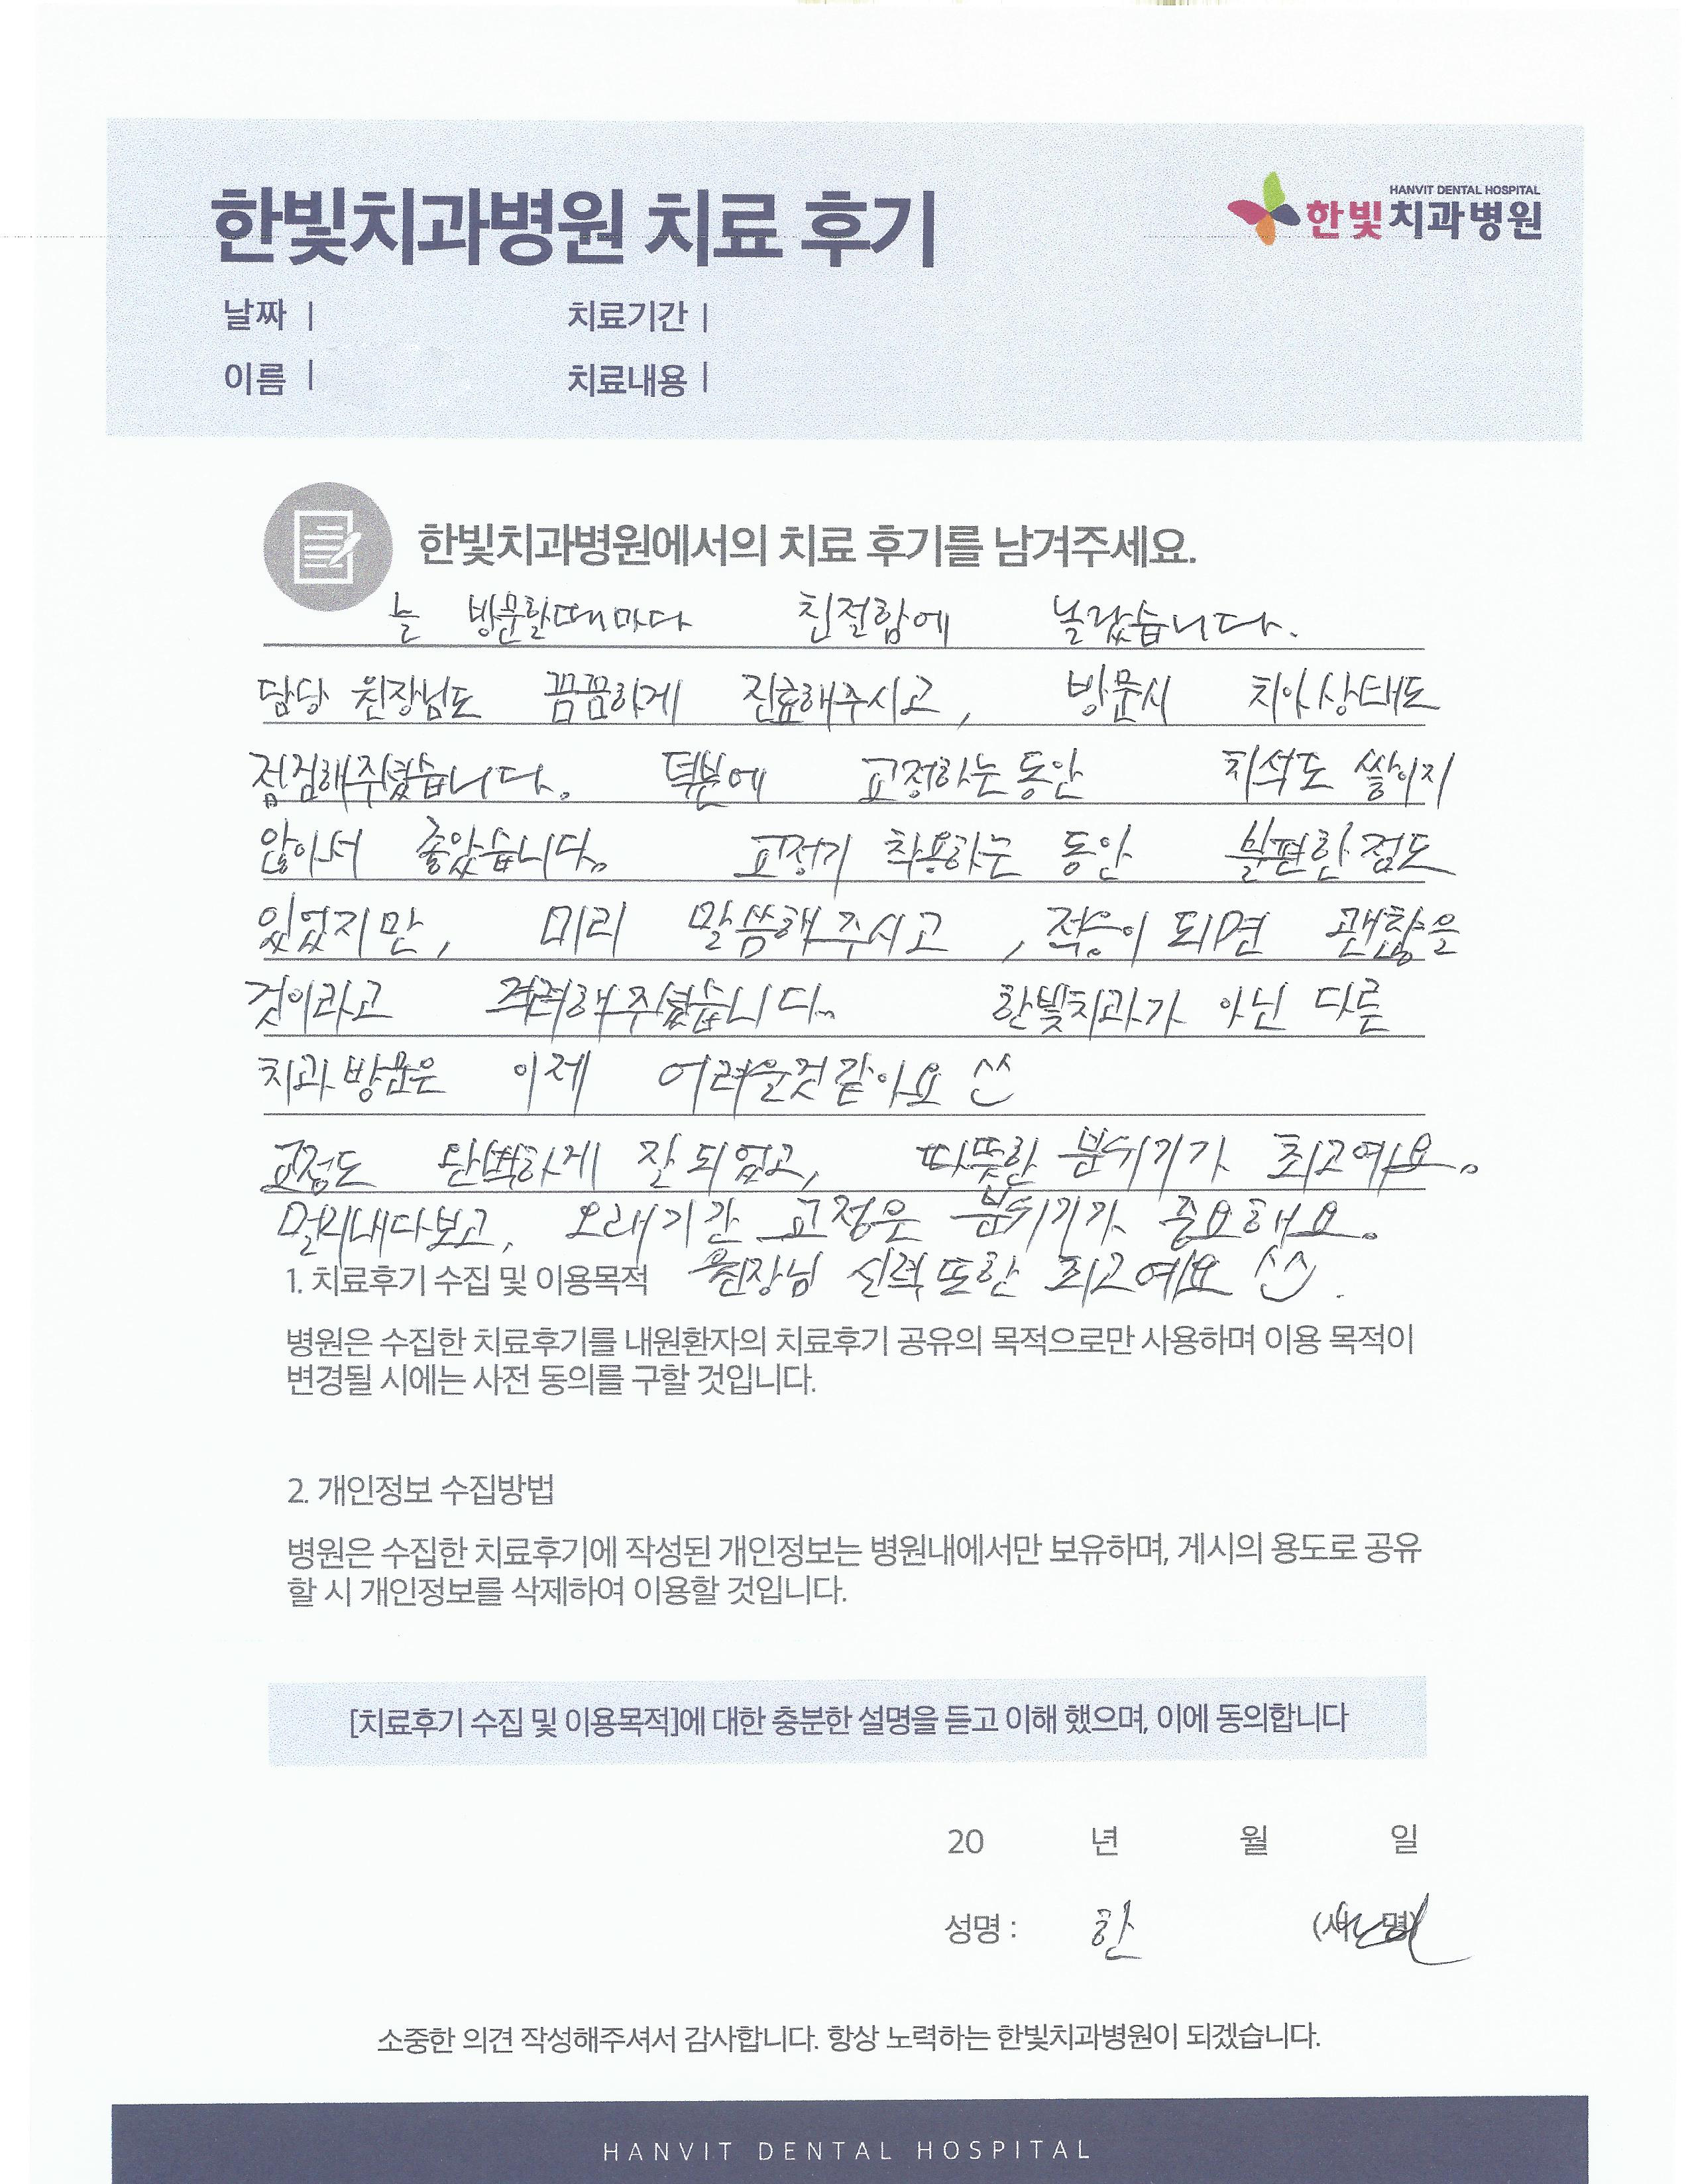 한빛치과병원 치료 후기
HANVIT DENTAL HOSPITAL
한빛치과병원
날짜 |
치료기간 |
이름 |
치료내용 |
한빛치과병원에서의 치료 후기를 남겨주세요.
늘 방문할때마다 친절함에 놀랐습니다.
담당 원장님도 꼼꼼하게 진료해주시고, 방문시 치아상태도
점검해주셨습니다. 덕분에 교정하는동안 치석도 쌓이지
않아서 좋았습니다. 교정기 착용하는 동안 불편한점도
있었지만, 미리 말씀해주시고, 적응이 되면 괜찮을
것이라고 격려해주셨습니다. 한빛치과가 아닌 다른
치과 방문은 이제 어려운것같아요 ^^
교정도 완벽하게 잘 되었고, 따뜻한 분위기가 최고예요.
멀리내다보고, 오래기간 교정은 분위기가 중요해요.
원장님 실력 또한 최고예요 ^^.
1. 치료후기 수집 및 이용목적
병원은 수집한 치료후기를 내원환자의 치료후기 공유의 목적으로만 사용하며 이용 목적이
변경될 시에는 사전 동의를 구할 것입니다.
2. 개인정보 수집방법
병원은 수집한 치료후기에 작성된 개인정보는 병원내에서만 보유하며, 게시의 용도로 공유
할 시 개인정보를 삭제하여 이용할 것입니다.
[치료후기 수집 및 이용목적]에 대한 충분한 설명을 듣고 이해 했으며, 이에 동의합니다
20 년 월 일
성명 : 한
소중한 의견 작성해주셔서 감사합니다. 항상 노력하는 한빛치과병원이 되겠습니다.
HANVIT DENTAL HOSPITAL